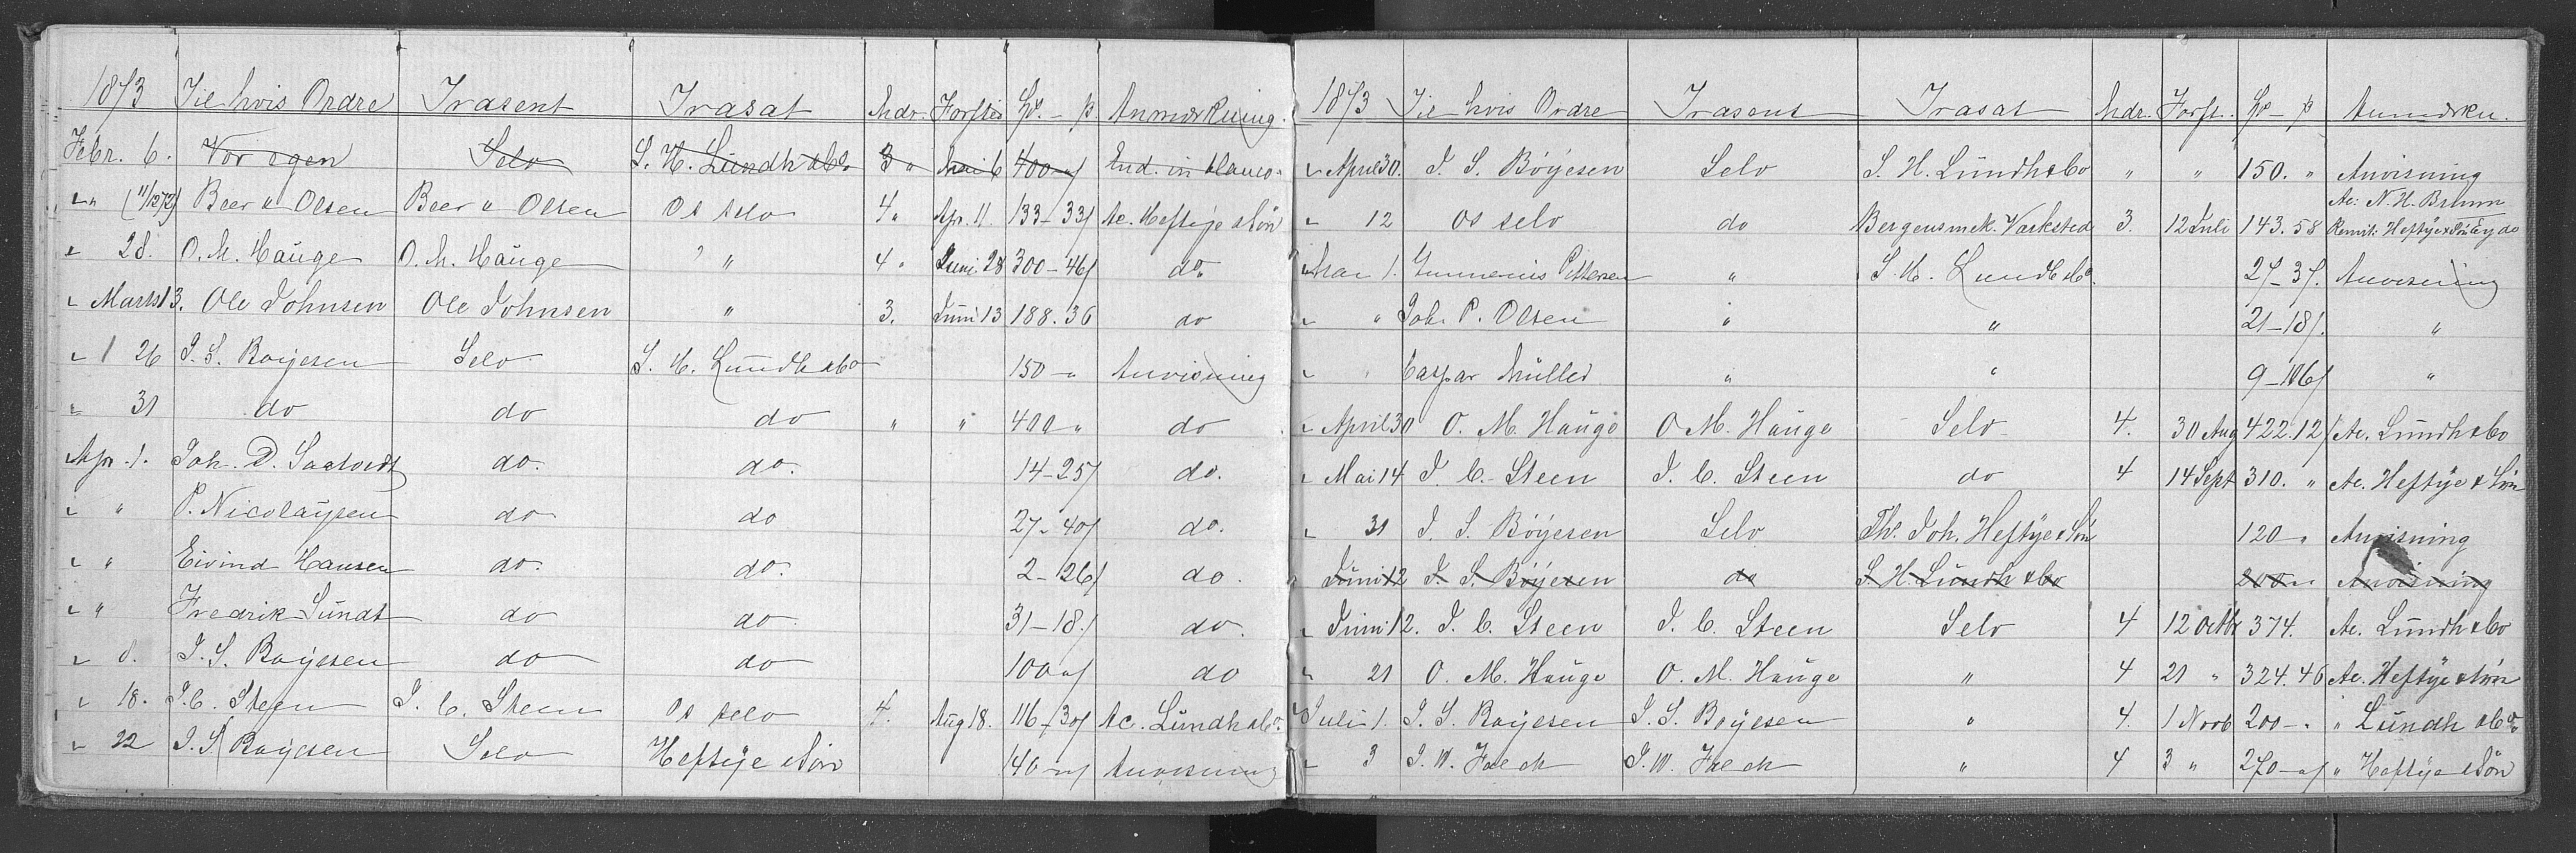 1873 Til hvis Ordre Trasent Trasat Mdr. Forftid Sp. - ß Anmærkning.
Febr. 6. Vor egen Selv S. H. Lundh & Co 3 " Mai 6 400 " End. in blanco.
" " (11/12 72) Beer & Olsen Beer & Olsen Os selv 4 " Apr. 11. 133-33 Ac. Heftye & Søn
" 28. O. M. Hauge O. M. Hauge " 4 " Juni 28 300-46 do.
" Marts 13. Ole Johnsen Ole Johnsen " 3. Juni 13 188.36 do
" " 26 J. S. Bøyesen Selv S. H. Lundh & Co 150 - " Anvisning
" 31 do do do " " 400 " do
Apr. 1. Joh. D. do. do. 14-25 do.
" " P. Nicolaysen do do 27-40 do.
" " Eivind Hansen do. do. 2-26 do.
" " Fredrik Sundt do do 31-18. do.
" 8. J. S. Bøyesen do do 100 " do
" 18. J. C. Steen J. C. Steen Os selv 4. Aug 18. 116-30 Ac. Lundh & Co.
" 22 J. S. Bøyesen Selv Heftye & Søn 140 - " Anvisning
1873 Til hvis Ordre Trasent Trasat Mdr. Forft. Sp - ß Anmærkn.
" April 30. J. S. Bøyesen Selv S. H. Lundh & Co " " 150. " Anvisning
" 12 os selv do Bergens mek. Værksted 3. 12 Juli 143.58 Ac: N. H. Bruun
Remit: Heftye & Søn
" Mai 1. Gunnerius Pettersen " S. H. Lundh & Co. 27-37. Anvisning
" " Joh. P. Olsen " " 21-18. "
" " Caspar Müller " " 9-106 "
" April 30 O. M. Hauge O. M. Hauge Selv 4. 30 Aug 422.12 Ac. Lundh & Co
" Mai 14 J. C. Steen J. C. Steen do 4 14 Sept 310. " Ac. Heftye & Søn
" 31 J. S. Bøyesen Selv Th. Joh. Heftye & Søn 120 - " Anvisning
" Juni 12 J. S. Bøyesen do S. H. Lundh & Co 200 " Anvisning
" Juni 12. J. C. Steen J. C. Steen Selv 4 12 Octbr 374. Ac. Lundh & Co
" 21 O. M. Hauge O. M. Hauge " 4 21 " 324.46 Ac. Heftye & Søn
" Juli 1. J. S. Bøyesen J. S. Bøyesen " 4. 1 Novb 200 - " " Lundh & Co
" 3 J. W. J. W. " 4 3 " 270 - " " Heftye & Søn